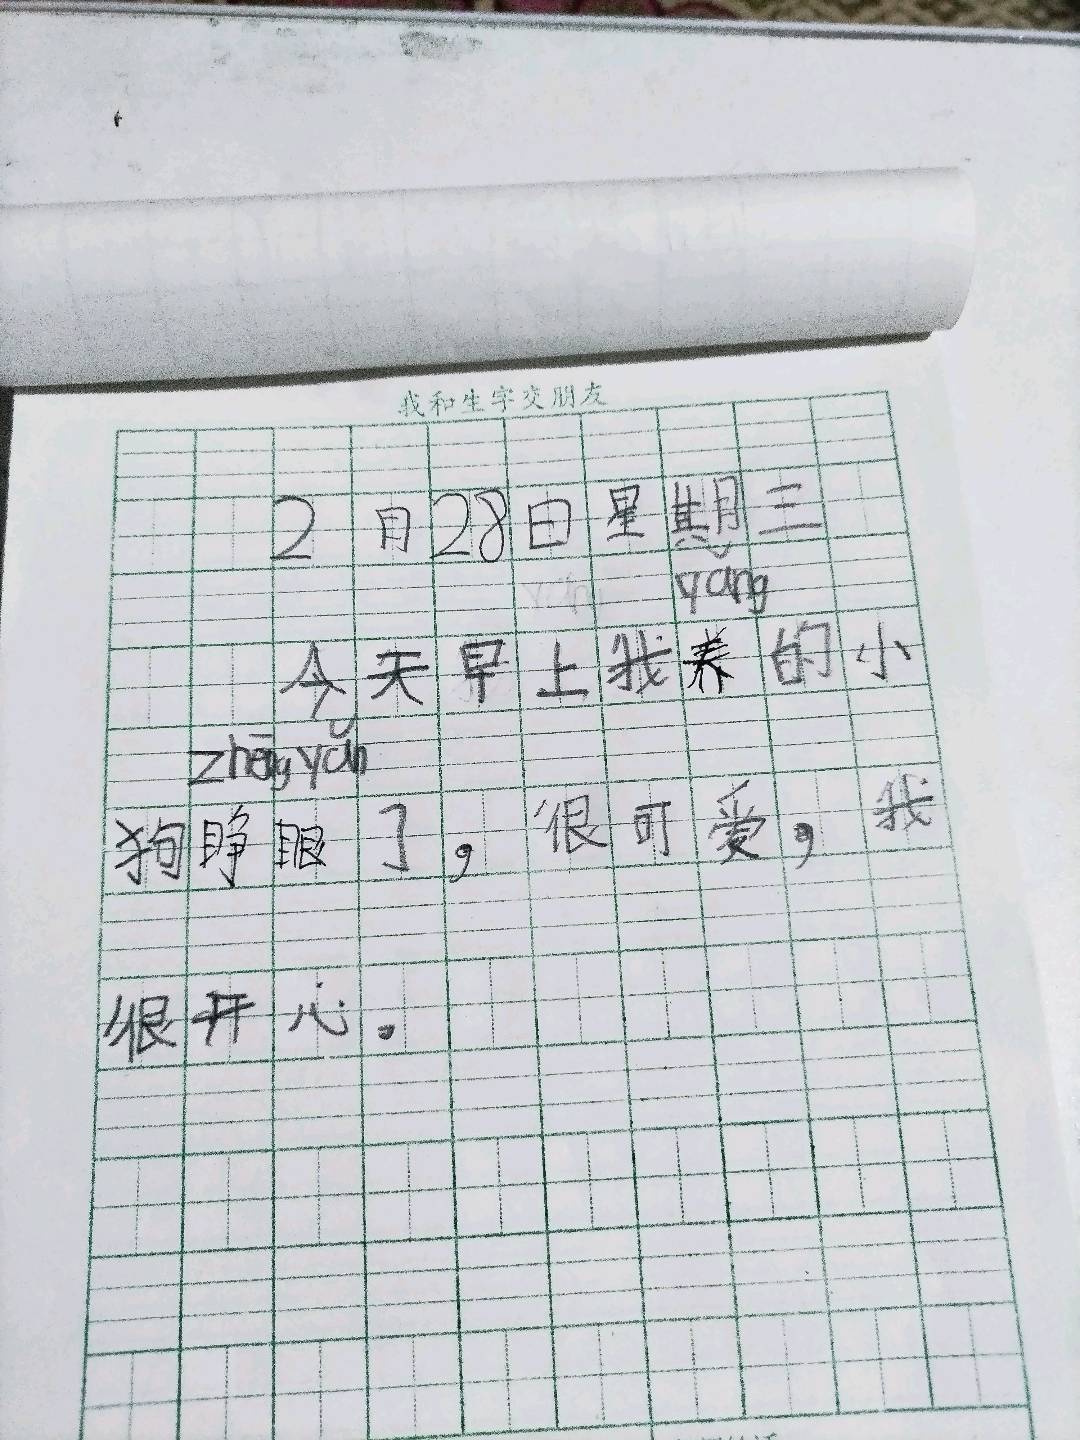 我和生字交朋友
2月28日星期三
yǎng
今天早上我养的小
zhēng yǎn
狗睁眼了，很可爱，我
很开心.